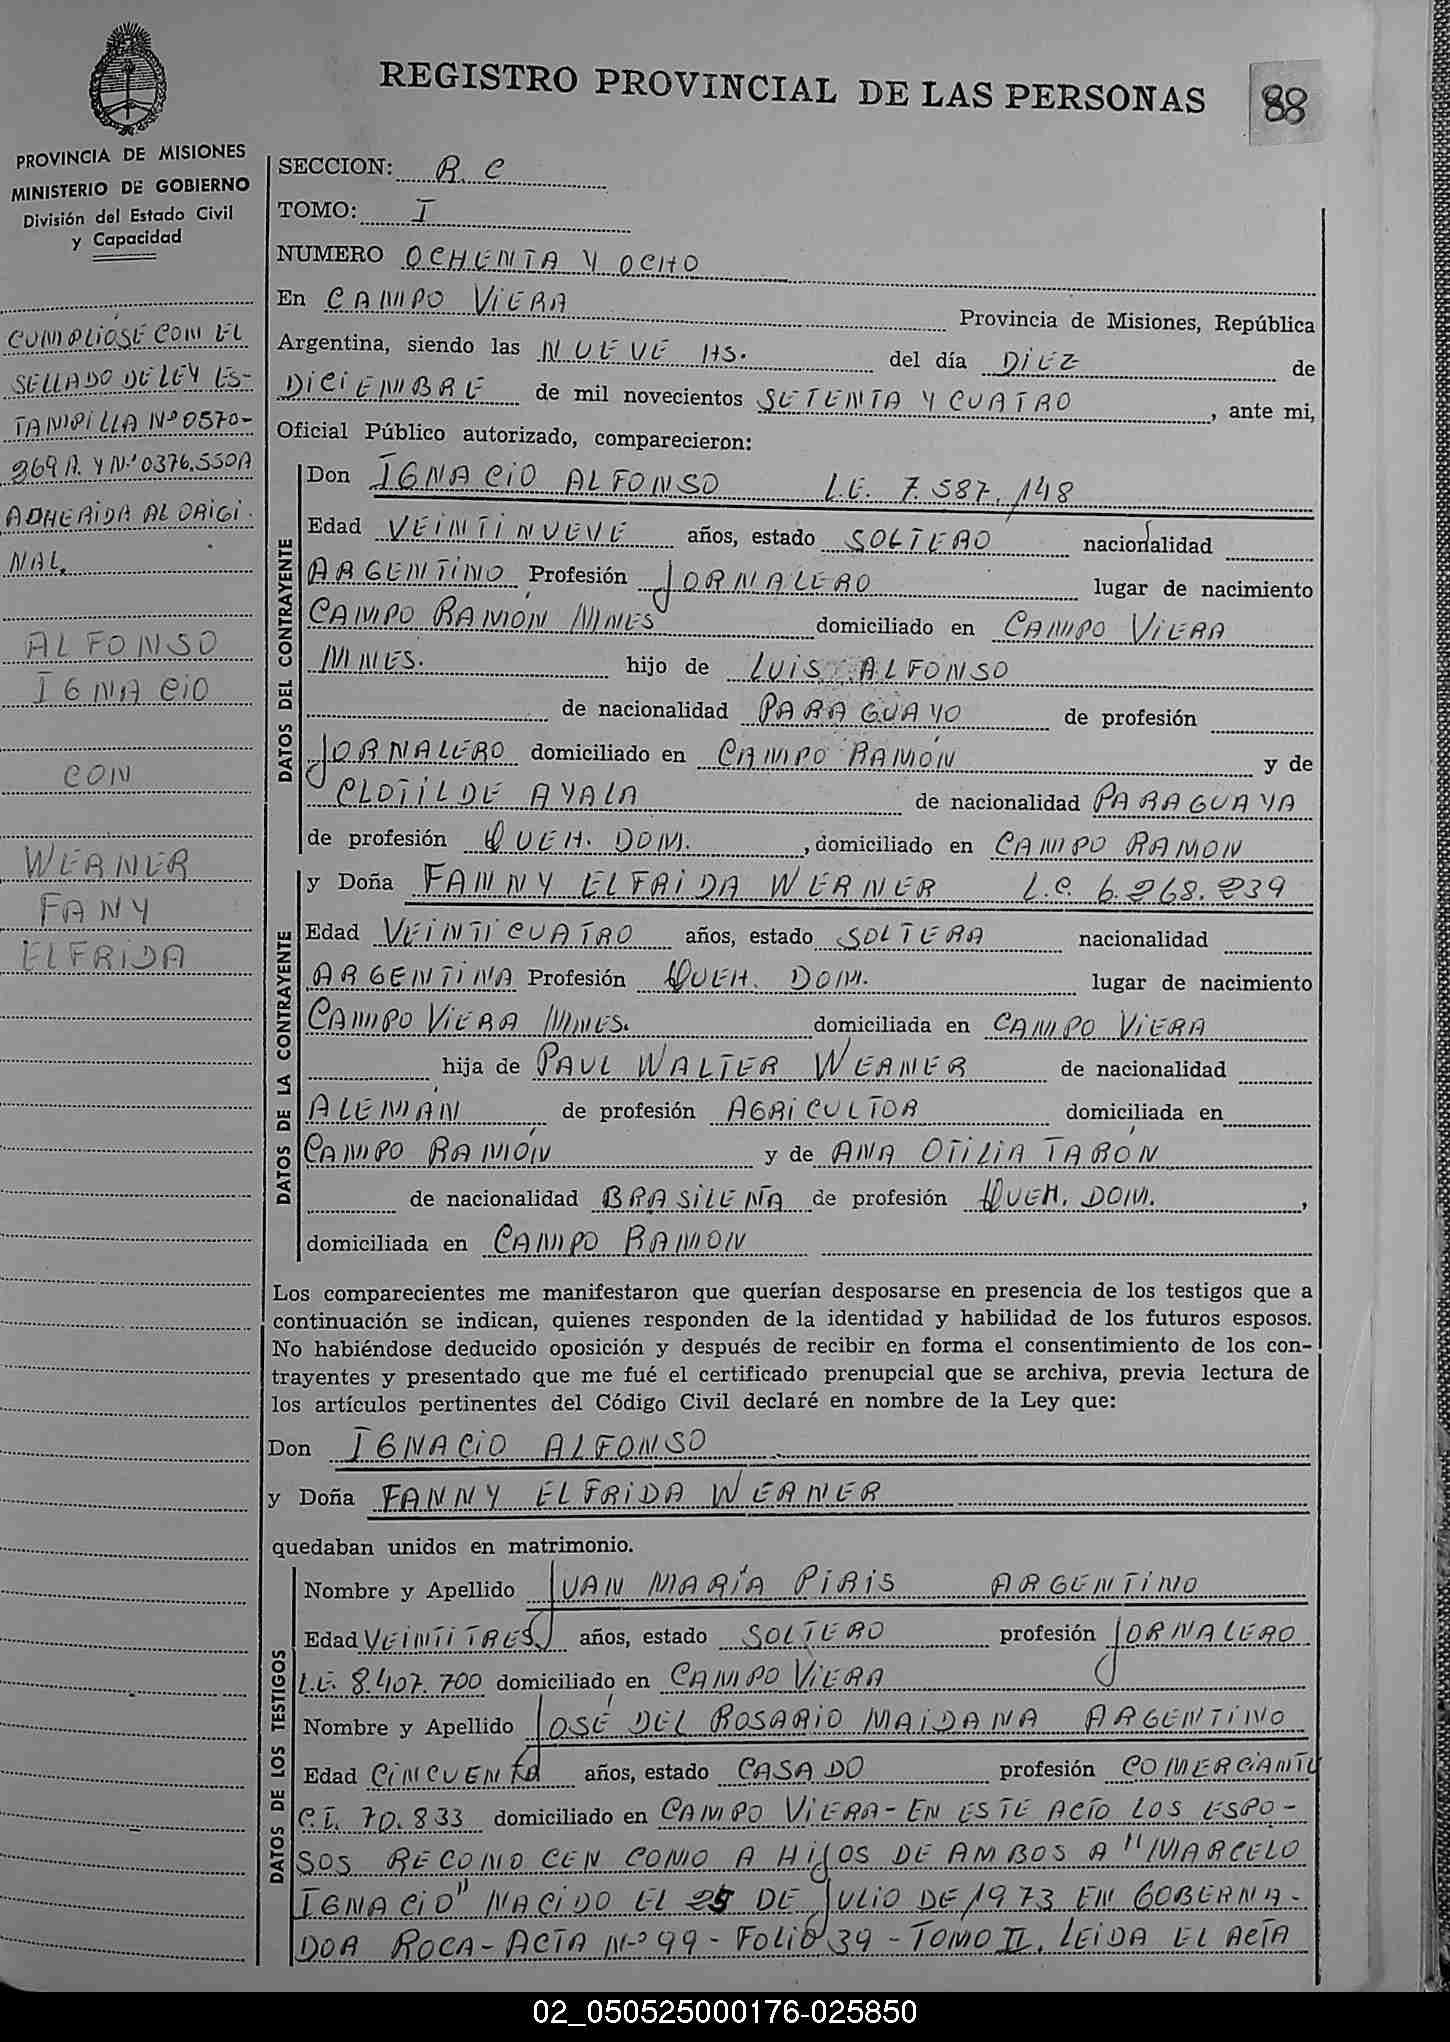 REGISTRO PROVINCIAL DE LAS PERSONAS
88
PROVINCIA DE MISIONES
MINISTERIO DE GOBIERNO
División del Estado Civil
y Capacidad
CUMPLIOSE CON EL
SELLADO DE LEY ES-
TAMPILLA Nº 0570-
269 A. Y Nº 0376.550A
ADHERIDA AL ORIGI-
NAL.
ALFONSO
IGNACIO
CON
WERNER
FANY
ELFRIDA
SECCION: R. C
TOMO: I
NUMERO OCHENTA Y OCHO
En CAMPO VIERA Provincia de Misiones, República
Argentina, siendo las NUEVE HS. del día DIEZ de
DICIEMBRE de mil novecientos SETENTA Y CUATRO, ante mi,
Oficial Público autorizado, comparecieron:
DATOS DEL CONTRAYENTE
Don IGNACIO ALFONSO L.E. 7.587.148
Edad VEINTINUEVE años, estado SOLTERO nacionalidad
ARGENTINO Profesión JORNALERO lugar de nacimiento
CAMPO RAMÓN MNES domiciliado en CAMPO VIERA
MNES. hijo de LUIS ALFONSO
de nacionalidad PARAGUAYO de profesión
JORNALERO domiciliado en CAMPO RAMÓN y de
CLOTILDE AYALA de nacionalidad PARAGUAYA
de profesión QUEH. DOM., domiciliado en CAMPO RAMON
DATOS DE LA CONTRAYENTE
y Doña FANNY ELFRIDA WERNER L.C. 6.268.239
Edad VEINTICUATRO años, estado SOLTERA nacionalidad
ARGENTINA Profesión QUEH. DOM. lugar de nacimiento
CAMPO VIERA MNES. domiciliada en CAMPO VIERA
hija de PAUL WALTER WERNER de nacionalidad
ALEMÁN de profesión AGRICULTOR domiciliada en
CAMPO RAMÓN y de ANA OTILIA TARÓN
de nacionalidad BRASILEÑA de profesión QUEH. DOM.,
domiciliada en CAMPO RAMON
Los comparecientes me manifestaron que querían desposarse en presencia de los testigos que a
continuación se indican, quienes responden de la identidad y habilidad de los futuros esposos.
No habiéndose deducido oposición y después de recibir en forma el consentimiento de los con-
trayentes y presentado que me fué el certificado prenupcial que se archiva, previa lectura de
los artículos pertinentes del Código Civil declaré en nombre de la Ley que:
Don IGNACIO ALFONSO
y Doña FANNY ELFRIDA WERNER
quedaban unidos en matrimonio.
DATOS DE LOS TESTIGOS
Nombre y Apellido JUAN MARÍA PIRIS ARGENTINO
Edad VEINTITRES años, estado SOLTERO profesión JORNALERO
L.E. 8.407.700 domiciliado en CAMPO VIERA
Nombre y Apellido JOSÉ DEL ROSARIO MAIDANA ARGENTINO
Edad CINCUENTA años, estado CASADO profesión COMERCIANTE
C.I. 70.833 domiciliado en CAMPO VIERA- EN ESTE ACTO LOS ESPO-
SOS RECONOCEN COMO A HIJOS DE AMBOS A "MARCELO
IGNACIO" NACIDO EL 25 DE JULIO DE 1973 EN GOBERNA-
DOR ROCA- ACTA Nº 99 - FOLIO 39 - TOMO II. LEIDA EL ACTA
02_050525000176-025850